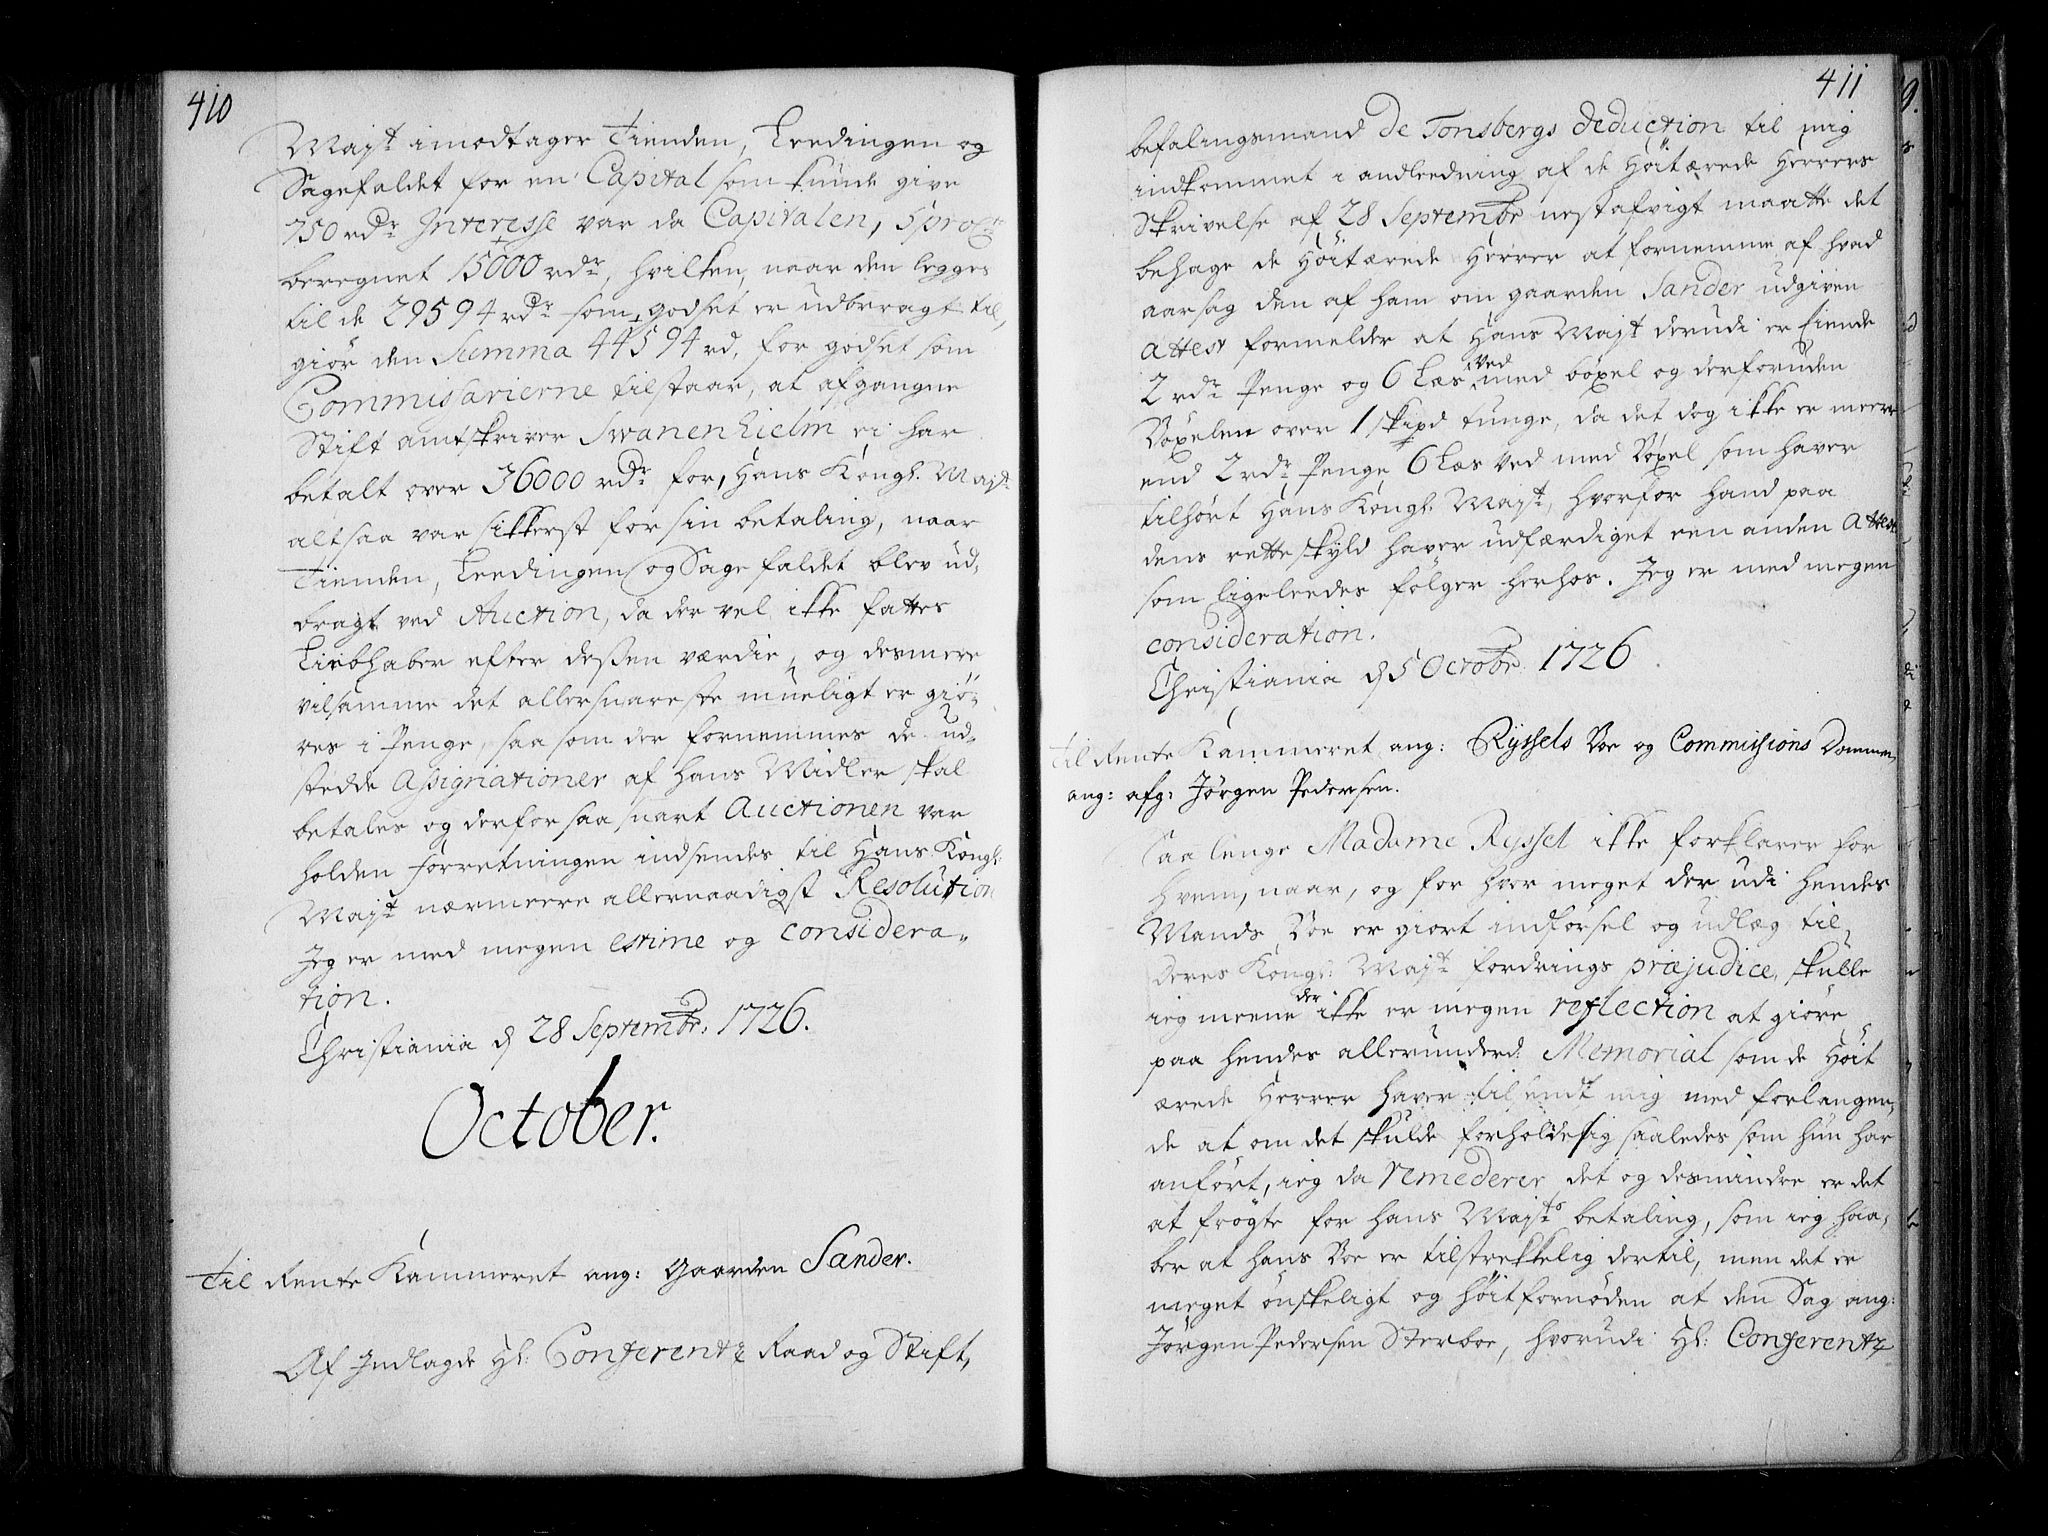 410
Majt. imodtager Tienden, Leedingen og
Sagefaldet for en Capital som kunde give
750 rdr. Interesse var da Capitalen, 5 proCt.
beregnet 15000 rdr., hvilken, naar den legges
til de 29594 rdr. som godset er udbragt til,
giør den Summa 44594 rd, for godset som
Commisarierne tilstaar, at afgangne
Stift amtskriver Swanenhielm ei har
betalt over 36000 rdr. for, Hans Kongl. Majt.
altsaa var sikkerst for sin betaling, naar
Tienden, Leedingen og Sagefaldet blev ud-
bragt ved Auction, da der vel ikke fattes
Liebhaber efter dessen værdie, og desmere
vilsamme det allersnareste mueligt er giö-
res i Penge, saa som der fornemmes de ud-
stedde Assignationer af hans Midler skal
betales og derfor saa snart Auctionen var
holden forretningen indsendes til Hans Kongl:
Majt. nærmeere allernaadigst Resolution
Jeg er med megen estime og considera-
tion.
Christiania d 28 Septembr: 1726.
October.
Til Rente Kammeret ang: Gaarden Sander.
Af Indlagde Hl: Conferentz Raad og Stift,
411
befalingsmand De Tonsbergs Deduction til mig
indkommet i andleedning af de Höitærede Herrers
Skrivelse af 28 Septembr nestafvigt maatte det
behage de Höitærede Herrer at fornemme af hvad
aarsag den af ham om gaarden Sander udgiven
Attest formelder at Hans Majt derudi er Eiende
2 rdr. Penge og 6 Læs ved med böxel og derforuden
Böxelen over 1 skipd tunge, da det dog ikke er meere
end 2 rdr. Penge 6 Læs Ved med Böxel som haver
tilhört Hans Kongl. Majt., hvorfor hand paa
dens rette skyld haver udfærdiget een anden Attest
som ligeleedes følger herhos. Jeg er med megen
consideration.
Christiania d 5 Octobr. 1726.
Til Rente Kammeret ang: Ryssels Boe og Commissions Dommen,
ang: afg: Jörgen Pedersen.
Saa lenge Madame Ryssel ikke forklarer for
hvem, naar, og for hvor meget der udi hendes
Mands Boe er giort indförsel og udlæg til
Deres Kongl: Majt. fordrings præjudice, skulle
ieg meene der ikke er megen reflection at giöre
paa hendes allerunderd: Memorial som de Höit
ærede Herrer haver tilsendt mig med forlangen-
de at om det skulde forholde sig saaledes som hun har
anfört, ieg da remederer det og desmindre er det
at frögte for hans Majts. betaling, som ieg haa-
ber at hans Boe er tilstrekkelig dertil, men det er
meget önskeligt og höitfornöden at den Sag ang:
Jörgen Pedersen Sterboe, hvorudi Hl: Conferentz